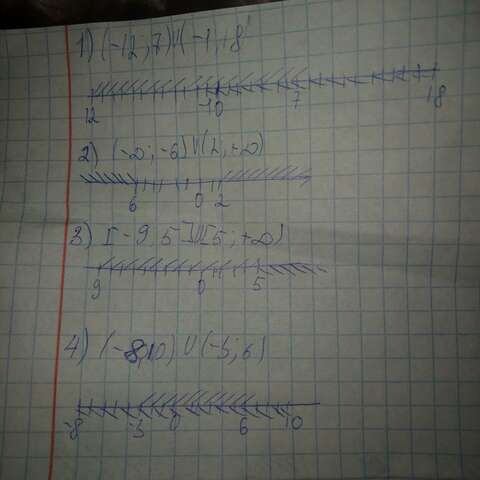 1) (-12; 7) U (-1; 18
12 -10 7 18
2) (-∞; -6] U (2; +∞)
6 0 2
3) [-9 5] U [5; +∞)
9 0 5
4) (-8,10) U (-3; 6)
-8 -3 0 6 10